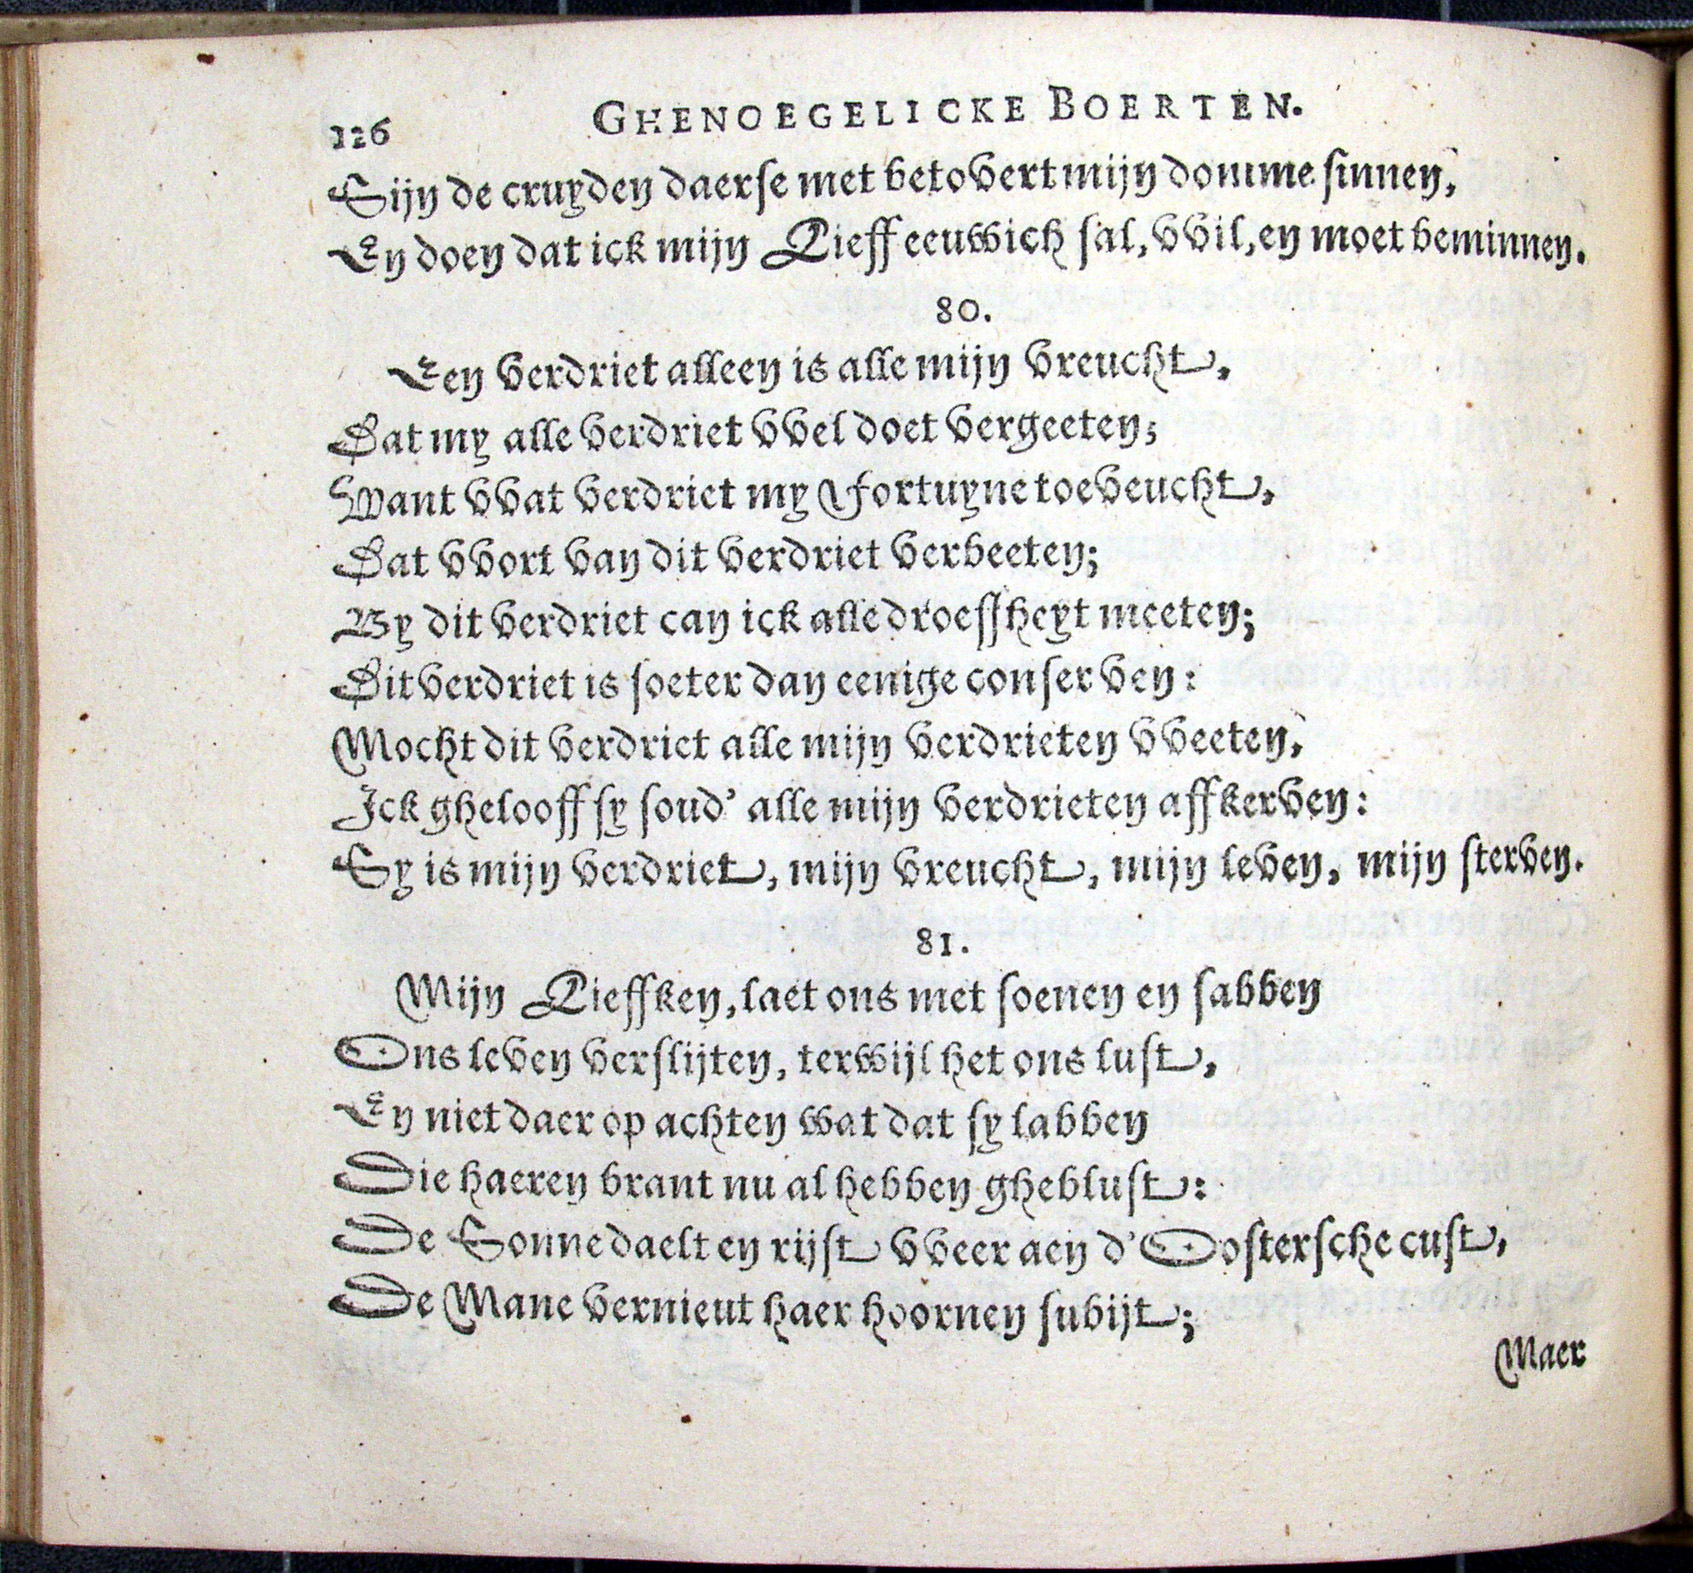 126 GHENOEGELICKE BOERTEN.
Sijn de cruyden daerse met betovert mijn domme sinnen,
En doen dat ick mijn Lieff eeuwich sal, vvil, en moet beminnen.
80.
Een verdriet alleen is alle mijn vreucht,
Dat my alle verdriet vvel doet vergeeten;
Want vvat verdriet my Fortuyne toeveucht,
Dat vvort van dit verdriet verbeeten;
By dit verdriet can ick alle droefheyt meeten;
Dit verdriet is soeter dan eenige conserven:
Mocht dit verdriet alle mijn verdrieten vveeten,
Ick ghelooff sy soud' alle mijn verdrieten affkerven:
Sy is mijn verdriet, mijn vreucht, mijn leven, mijn sterven.
81.
Mijn Lieffken, laet ons met soenen en sabben
Ons leven verslijten, terwijl het ons lust,
En niet daer op achten wat dat sy labben
Die haeren brant nu al hebben gheblust:
De Sonne daelt en rijst vveer aen d'Oostersche cust,
De Mane vernieut haer hoornen subijt;
Maer